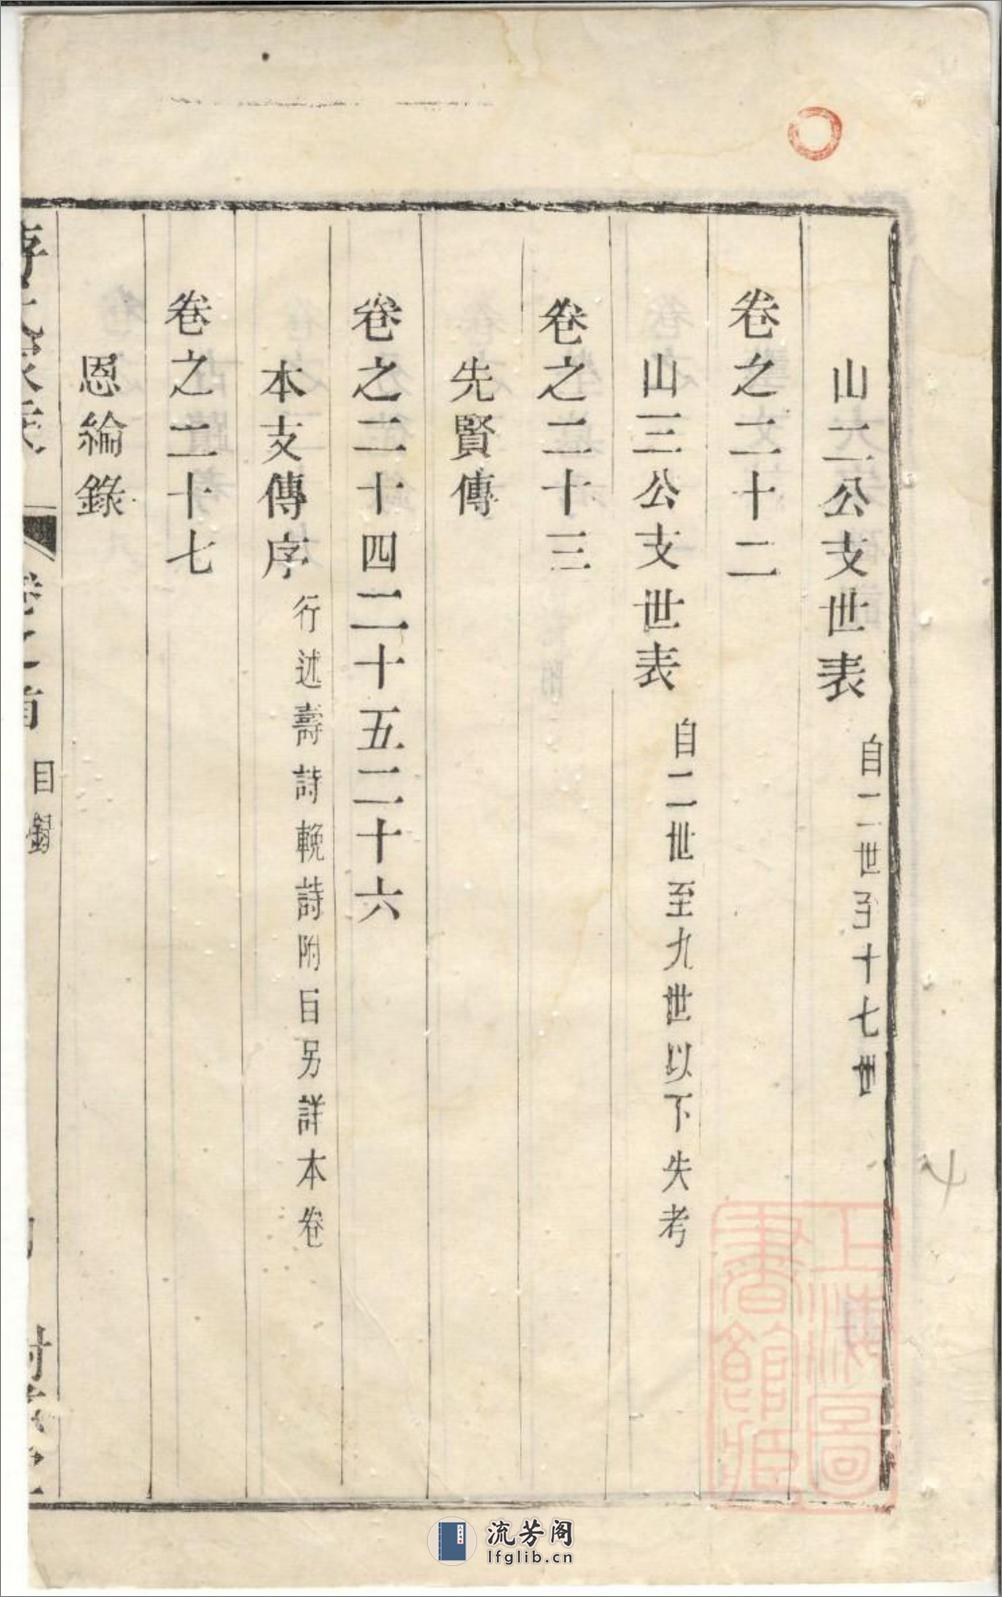 山二公支世表 自二世至十七世
卷之二十二
山三公支世表 自二世至九世以下失考
卷之二十三
先賢傳
卷之二十四二十五二十六
本支傳序 行述壽詩輓詩附目另詳本卷
卷之二十七
恩綸錄
卷之首 目錄
上海圖書館藏
流芳阁
lfglib.cn